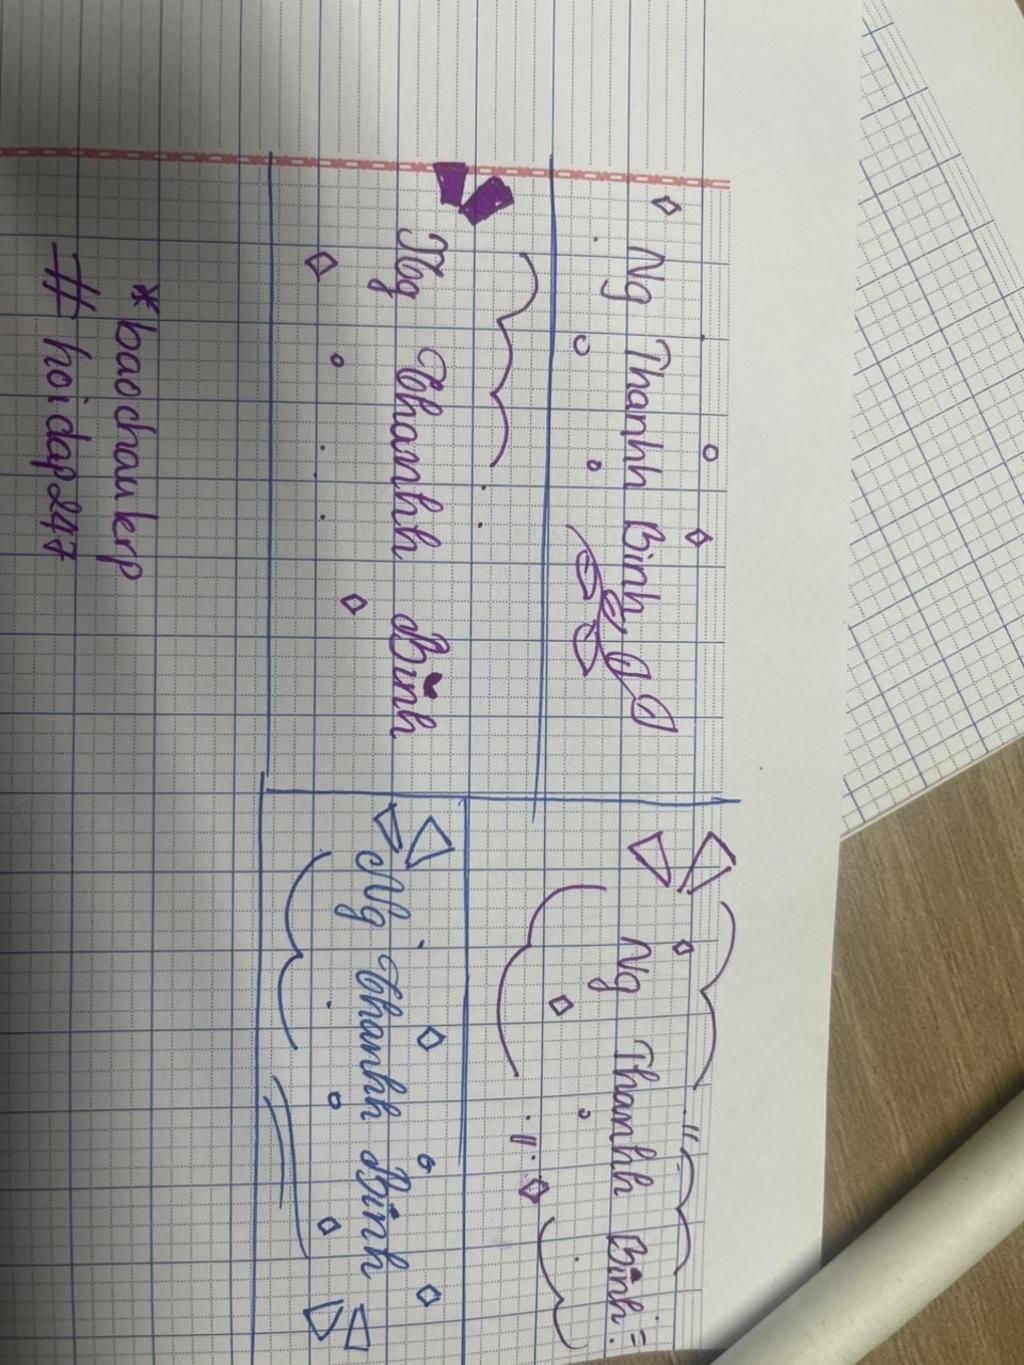 Ng Thanhh Binh
Ng Thanhh Binh
Ng Thanhh Binh
Ng Thanhh Binh
*baochaukrp
# hoidap247